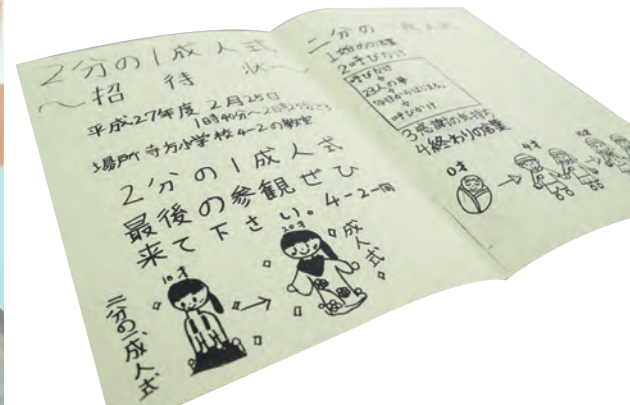 2分の1成人式
～招待状～
平成27年度 2月25日
1時40分～2時25分ごろ
場所 寺方小学校4-2の教室
2分の1成人式
最後の参観ぜひ
来て下さい。4-2一同
10才
20才
成人式
二分の一成人式
二分の一成人式
1始めの言葉
2呼びかけ
呼びかけ
23人の夢
今日からはじまる
呼びかけ
3感謝の気持ち
4終わりの言葉
0才
4才
10才